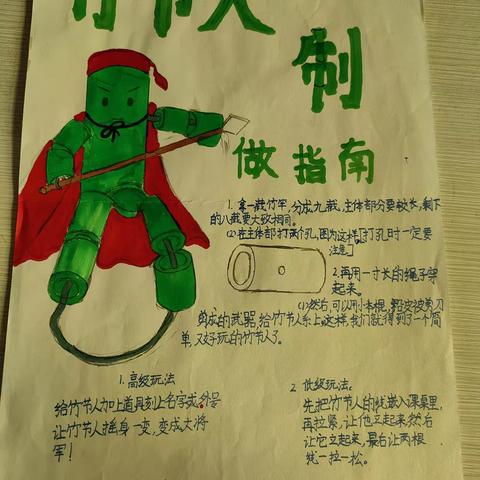 竹节人
制
做指南
1. 拿一截竹竿,分成九截。主体部分要较长,剩下
的八截要大致相同。
(2)在主体部打两个孔,图为这样。[打孔时一定要
注意]
2.再用一寸长的绳子穿
起来。
(1)然后,可以用小木棍,铅皮被剪刀
剪成的武器给竹节人系上。这样,我们就得到了一个简
单,又好玩的竹节人了。
1. 高级玩法
给竹节人加上道具刻上名字或外号
让竹节人摇身一变,变成大将
军!
2. 低级玩法。
先把竹节人的线嵌入课桌里,
再拉紧,让他立起来然后
让它立起来,最后让两根
线一拉一松。